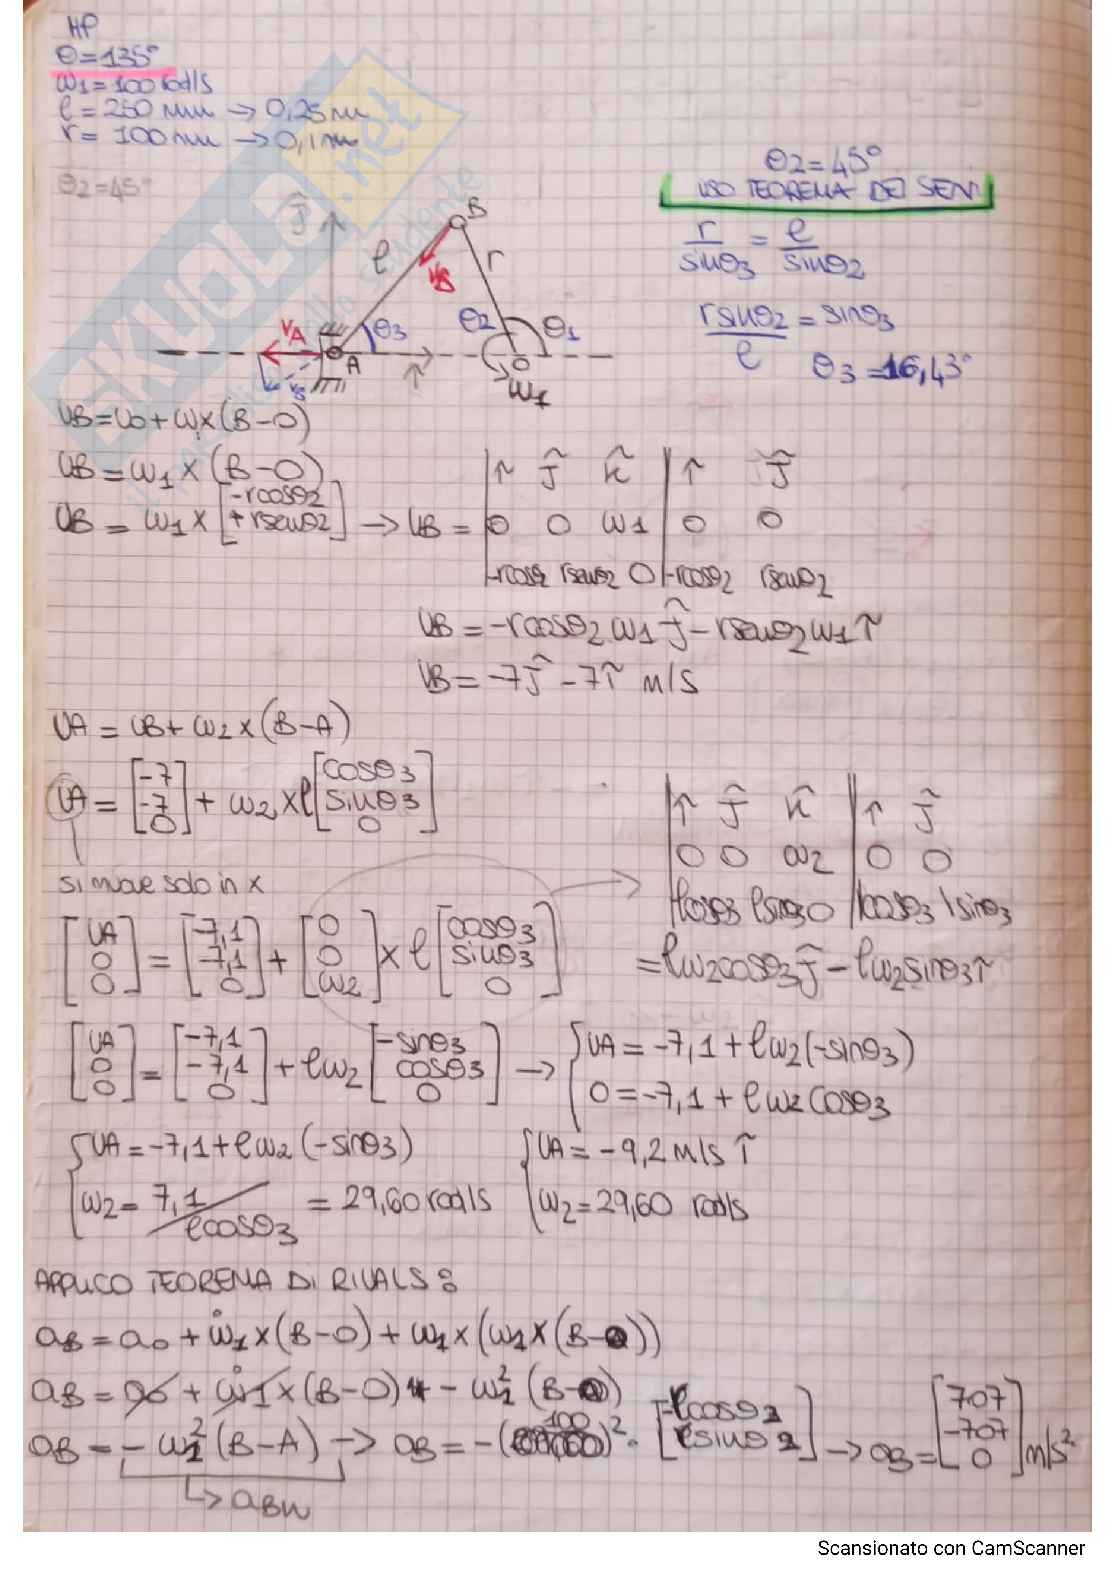 HP
θ=135°
ω1=100 rad/s
l = 250 mm → 0,25 m
r = 100 mm → 0,1 m
θ2=45°
θ2=45°
USO TEOREMA DEI SENI
r/sinθ3 = l/sinθ2
r sinθ2/l = sinθ3
θ3=16,43°
ĵ
B
l
r
VB
VA
θ3
θ2
θ1
A
O
VB
î
ω1
VB=VO+ω1×(B-O)
VB=ω1×(B-O)
VB = ω1 × [-rcosθ2 +rsenθ2] → VB = | î ĵ k̂ | î ĵ
0 0 ω1 0 0
-rcosθ2 rsenθ2 0 -rcosθ2 rsenθ2
VB=-rcosθ2ω1 ĵ - rsenθ2ω1 î
VB=-7ĵ-7î m/s
VA = VB+ω2×(B-A)
VA = [-7 -7 0] + ω2×l [cosθ3 sinθ3 0]
î ĵ k̂ | î ĵ
0 0 ω2 0 0
lcosθ3 lsinθ3 0 | lcosθ3 lsinθ3
si muove solo in x
[VA 0 0] = [-7,1 -7,1 0] + [0 0 ω2] × l [cosθ3 sinθ3 0]
=lω2cosθ3 ĵ - lω2sinθ3 î
[VA 0 0] = [-7,1 -7,1 0] + lω2 [-sinθ3 cosθ3 0] → { VA=-7,1+lω2(-sinθ3)
0=-7,1+lω2cosθ3
{ VA=-7,1+lω2(-sinθ3) { VA=-9,2 m/s î
ω2= 7,1/lcosθ3 = 29,60 rad/s ω2=29,60 rad/s
APPLICO TEOREMA DI RIVALS:
aB = aO + ω̇1×(B-O) + ω1×(ω1×(B-O))
aB = aO + ω̇1×(B-O) - ω1² (B-O)
aB = -ω1² (B-A) → aB = -(100)² · [-lcosθ2 lsinθ2] → aB=[707 -707 0] m/s²
↳ aBN
SKUOLA.net
Scansionato con CamScanner